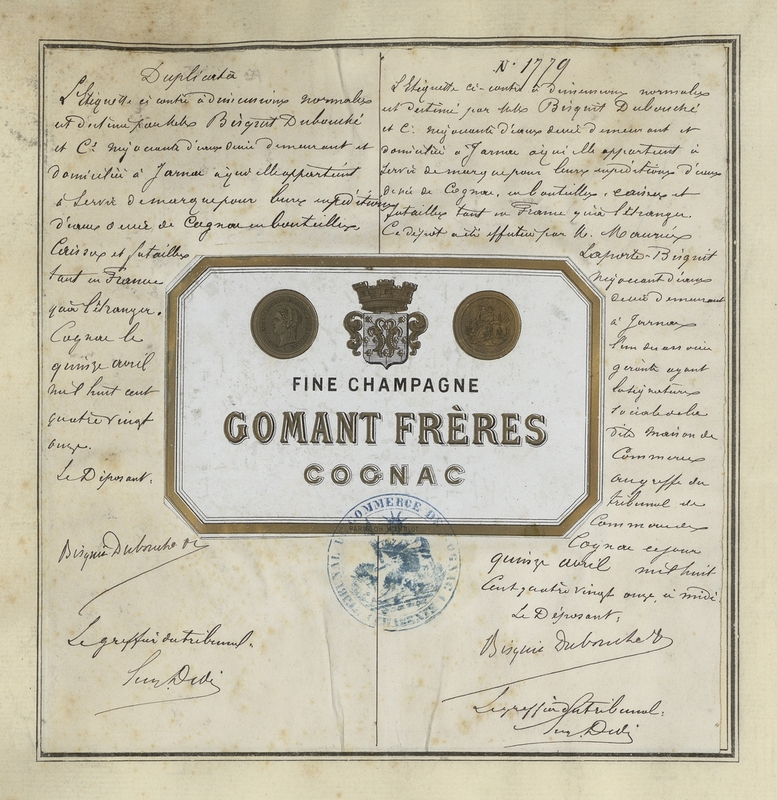 Duplicata
L'Etiquette ci contre à dimensions normales
est destiné par Mrs Bisquit Dubouché
et Cie négociants d'eaux de vie demeurant et
domiciliés à Jarnac à qui elle appartient
à Servir de marque pour leurs expéditions
d'eaux de vie de Cognac en bouteilles
Caisses et futailles
tant en France
qu'à l'étranger.
Cognac le
quinze avril
mil huit cent
quatre vingt
onze.
Le Déposant.
Bisquit Dubouché &
Le greffier du tribunal.
No 1779
L'Etiquette ci-contre à dimensions normales
est destiné par Mrs Bisquit Dubouché
et Cie négociants d'eaux de vie demeurant et
domiciliés à Jarnac à qui elle appartient à
Servir de marque pour leurs expéditions d'eaux
de vie de Cognac, en bouteilles, caisses et
futailles tant en France qu'à l'étranger.
Ce dépôt a été effectué par M. Maurice
Laporte-Bisquit
Négociant d'eaux
de vie demeurant
à Jarnac
l'un des associés
gérants ayant
la signature
sociale de la
dite maison de
Commerce
au greffe du
tribunal de
Commerce de
Cognac ce jour
quinze avril mil huit
Cent quatre vingt onze, à midi.
Le Déposant,
Bisquit Dubouché &
Le greffier du tribunal.
FINE CHAMPAGNE
GOMANT FRÈRES
COGNAC
TRIBUNAL DE COMMERCE DE COGNAC (CHARENTE)